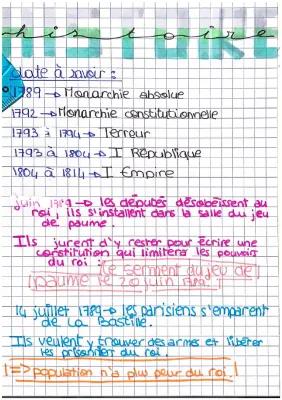 histoire
HISTOIRE
date à savoir :
1789 → Monarchie absolue
1792 → Monarchie constitutionnelle
1793 à 1794 → Terreur
1793 à 1804 → I République
1804 à 1814 → I Empire
juin 1789 → les députés désobéissent au
roi, ils s'installent dans la salle du jeu
de paume.
Ils jurent d'y rester pour écrire une
constitution qui limitera les pouvoirs
du roi : le serment du jeu de
paume le 20 juin 1789.
14 juillet 1789 → les parisiens s'emparent
de La Bastille.
Ils veulent y trouver des armes et libérer
les prisonnier du roi.
! => population n'a plus peur du roi !